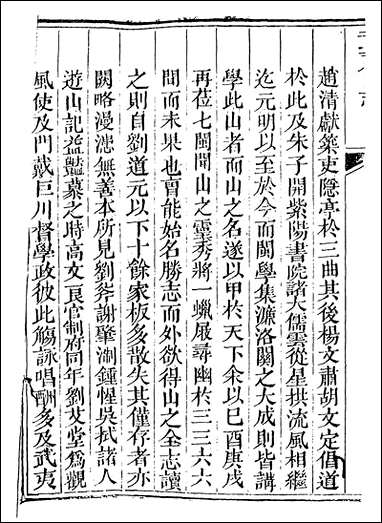 趙清獻築吏隱亭於三曲其後楊文肅胡文定倡道
於此及朱子開紫陽書院諸大儒雲從星拱流風相繼
迄元明以至於今而閩學集濂洛關之大成則皆講
學此山者而山之名遂以甲於天下余以巳酉庚戌
再莅七閩閩山之靈秀將一蠟屐尋幽於三三六六
間而未果也曹能始名勝志而外欲得山之全志讀
之則自劉道元以下十餘家板多散失其僅存者亦
闕略漫漶無善本所見劉斧謝肇淛鍾惺吳拭諸人
遊山記益豔慕之時高文良官制府同年劉艾堂爲觀
風使及門戴巨川督學政彼此觴詠唱酬多及武夷